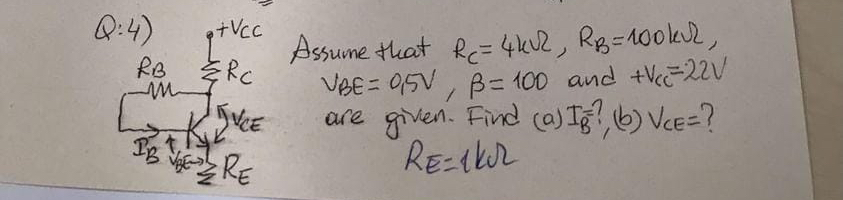 Q:4)
+VCC
RB
RC
VCE
IB
VBE
RE
Assume that RC = 4kΩ, RB = 100kΩ,
VBE = 0,5V, β = 100 and +VCC = 22V
are given. Find (a) IB = ?, (b) VCE = ?
RE = 1kΩ